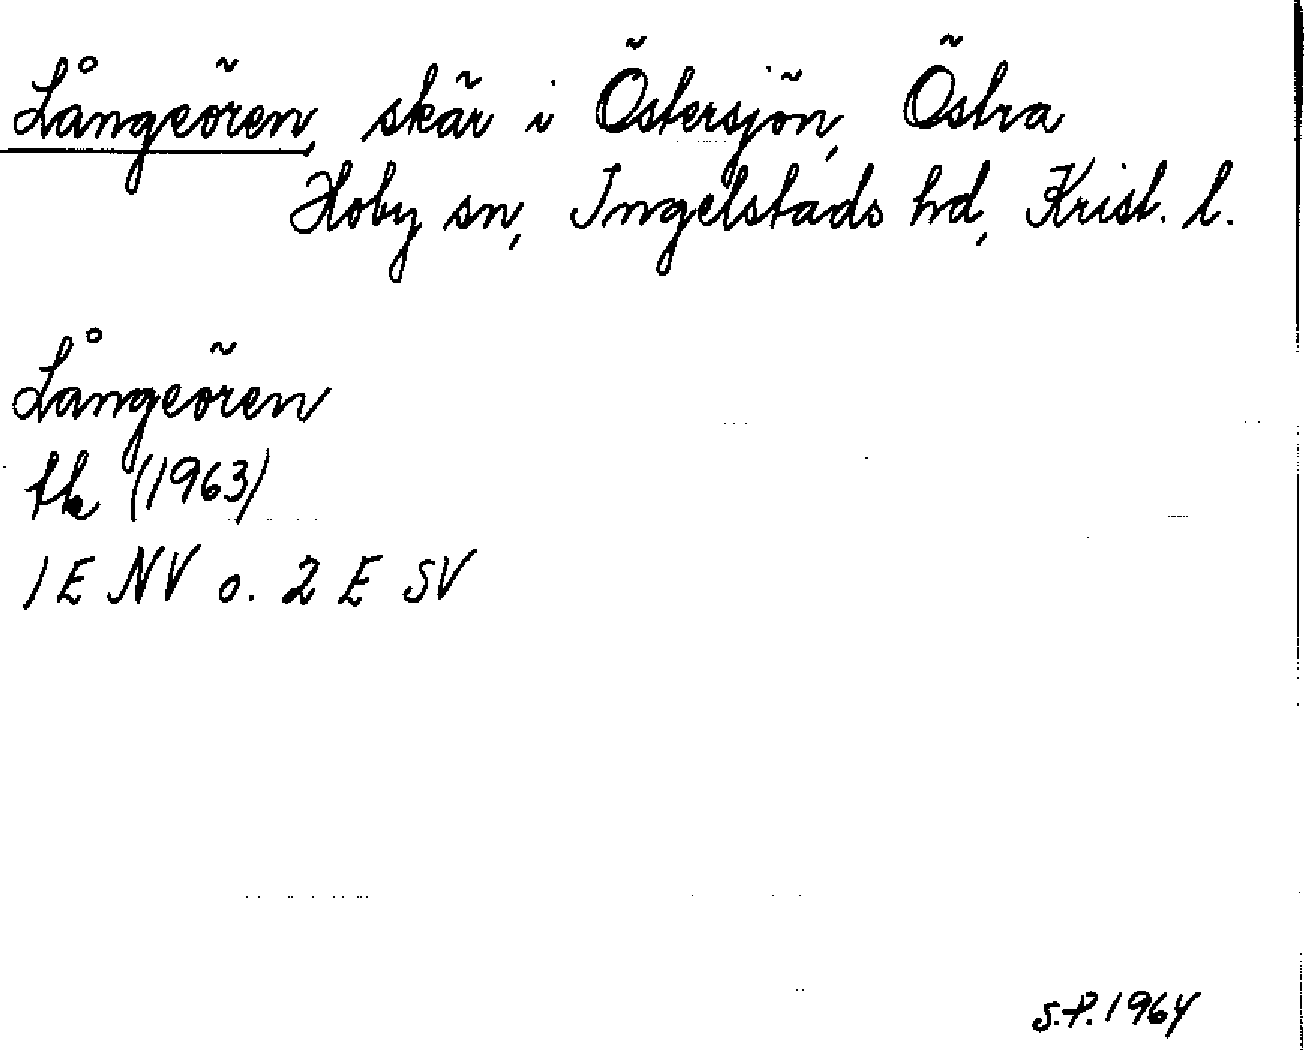 Långeören, skär i Östersjön, Östra
Hoby sn, Ingelstads hd, Krist. l.
Långeören
fk (1963)
1 E NV o. 2 E SV
S.P. 1964